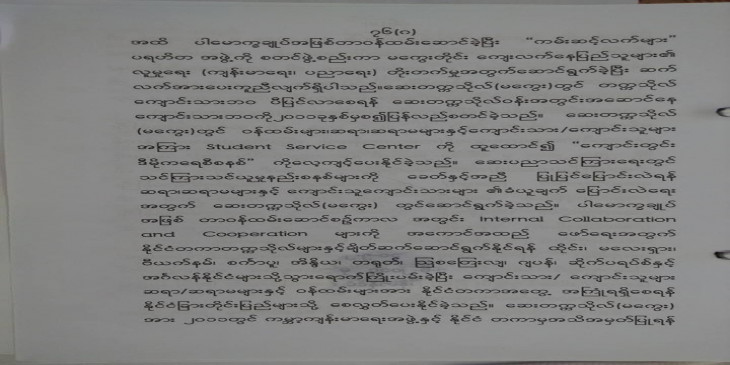 ၇၆(ဂ)
အထိ ပါမောက္ခချုပ်အဖြစ်တာဝန်ထမ်းဆောင်ခဲ့ပြီး “ကမ်းဆင့်လက်များ”
ပရဟိတ အဖွဲ့ကို စတင်ဖွဲ့စည်းကာ မကွေးတိုင်း ကျေးလက်နေပြည်သူများ၏
လူမှုရေး (ကျန်းမာရေး၊ ပညာရေး) တိုးတက်မှုအတွက်ဆောင်ရွက်ခဲ့ပြီး ဆက်
လက်အားပေးကူညီလျက်ရှိပါသည်။ဆေးတက္ကသိုလ်(မကွေး)တွင် တက္ကသိုလ်
ကျောင်းသားဘဝ ပီပြင်လာစေရန် ဆေးတက္ကသိုလ်ဝန်းအတွင်းအဆောင်နေ
ကျောင်းသားဘဝကို၂၀၀၁ခုနှစ်မှစ၍ပြန်လည်စတင်ခဲ့သည်။ ဆေးတက္ကသိုလ်
(မကွေး)တွင် ဝန်ထမ်းများ၊ဆရာ၊ဆရာမများနှင့်ကျောင်းသား/ကျောင်းသူများ
အကြား Student Service Center ကို ထူထောင်၍ “ကျောင်းတွင်း
ဒီမိုကရေစီစနစ်” ကိုလေ့ကျင့်ပေးနိုင်ခဲ့သည်။ ဆေးပညာသင်ကြားရေးတွင်
သင်ကြားသင်ယူမှုနည်းစနစ်များကို ခေတ်နှင့်အညီ ပြုပြင်ပြောင်းလဲရန်
ဆရာ၊ဆရာမများနှင့် ကျောင်းသူကျောင်းသားများ ၏ခံယူချက် ပြောင်းလဲရေး
အတွက် ဆေးတက္ကသိုလ်(မကွေး) တွင်ဆောင်ရွက်ခဲ့သည်။ ပါမောက္ခချုပ်
အဖြစ် တာဝန်ထမ်းဆောင်စဉ်ကာလ အတွင်း Internal Collaboration
and Cooperation များကို အကောင်အထည် ဖော်ရေးအတွက်
နိုင်ငံတကာတက္ကသိုလ်များနှင့်ချိတ်ဆက်ဆောင်ရွက်နိုင်ရန် ထိုင်း၊ မလေးရှား၊
ဗီယက်နမ်၊ စင်္ကာပူ၊ အိန္ဒိယ၊ တရုတ်၊ ဩစတြေးလျ၊ ဂျပန်၊ ဆိုက်ပရပ်စ်နှင့်
အင်္ဂလန်နိုင်ငံများသို့သွားရောက်ကြိုးပမ်းခဲ့ပြီး ကျောင်းသား/ ကျောင်းသူများ
ဆရာ/ဆရာမများနှင့် ဝန်ထမ်းများအား နိုင်ငံတကာအတွေ့ အကြုံရရှိစေရန်
နိုင်ငံခြားတိုင်းပြည်များသို့ စေလွှတ်ပေးနိုင်ခဲ့သည်။ ဆေးတက္ကသိုလ်(မကွေး)
အား ၂၀၀၁တွင် ကမ္ဘာ့ကျန်းမာရေးအဖွဲ့နှင့် နိုင်ငံ တကာမှအသိအမှတ်ပြုရန်